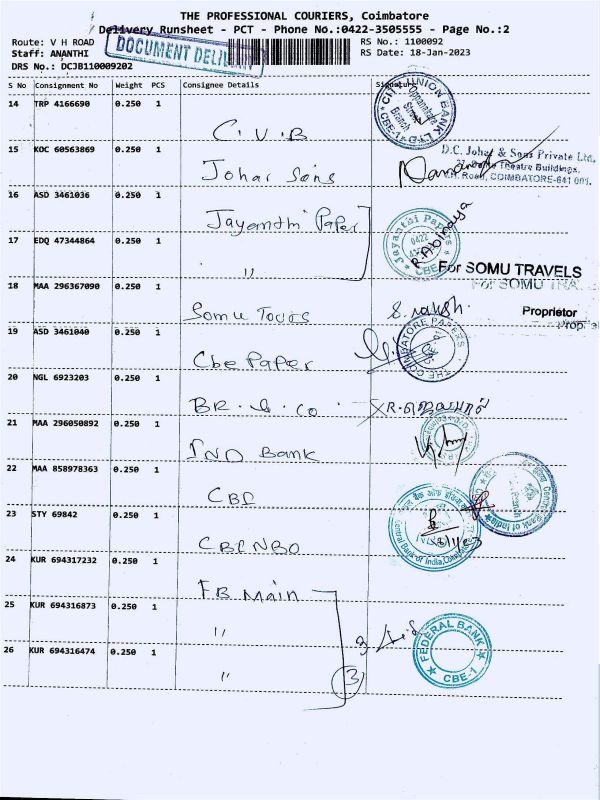 THE PROFESSIONAL COURIERS, Coimbatore
Delivery Runsheet - PCT - Phone No.:0422-3505555 - Page No.:2
Route: V H ROAD RS No.: 1100092
Staff: ANANTHI RS Date: 18-Jan-2023
DRS No.: DCJB110009202
DOCUMENT DELIVERY
S No Consignment No Weight PCS Consignee Details Signature
14 TRP 4166690 0.250 1
C.V.B
CITY UNION BANK LTD
Branch
CBE-1
15 KOC 60563869 0.250 1
Johar Sons
D.C. Johar & Sons Private Ltd,
Theatre Buildings,
V.H. Road, COIMBATORE-641 001.
16 ASD 3461036 0.250 1
Jayanthi Paper
Jayanthi Papers
0422
CBE
R.Abinaya
17 EDQ 47344864 0.250 1
"
For SOMU TRAVELS
For SOMU TRA
18 MAA 296367090 0.250 1
Somu Tours
Proprietor
Prop
19 ASD 3461040 0.250 1
Cbe Paper
THE COIMBATORE PAPERS
20 NGL 6923203 0.250 1
BR.&.co
21 MAA 296050892 0.250 1
IND Bank
22 MAA 858978363 0.250 1
CBI
23 STY 69842 0.250 1
Central Bank of India,
24 KUR 694317232 0.250 1
FB Main
25 KUR 694316873 0.250 1
"
3
FEDERAL BANK
CBE-1
26 KUR 694316474 0.250 1
"
3